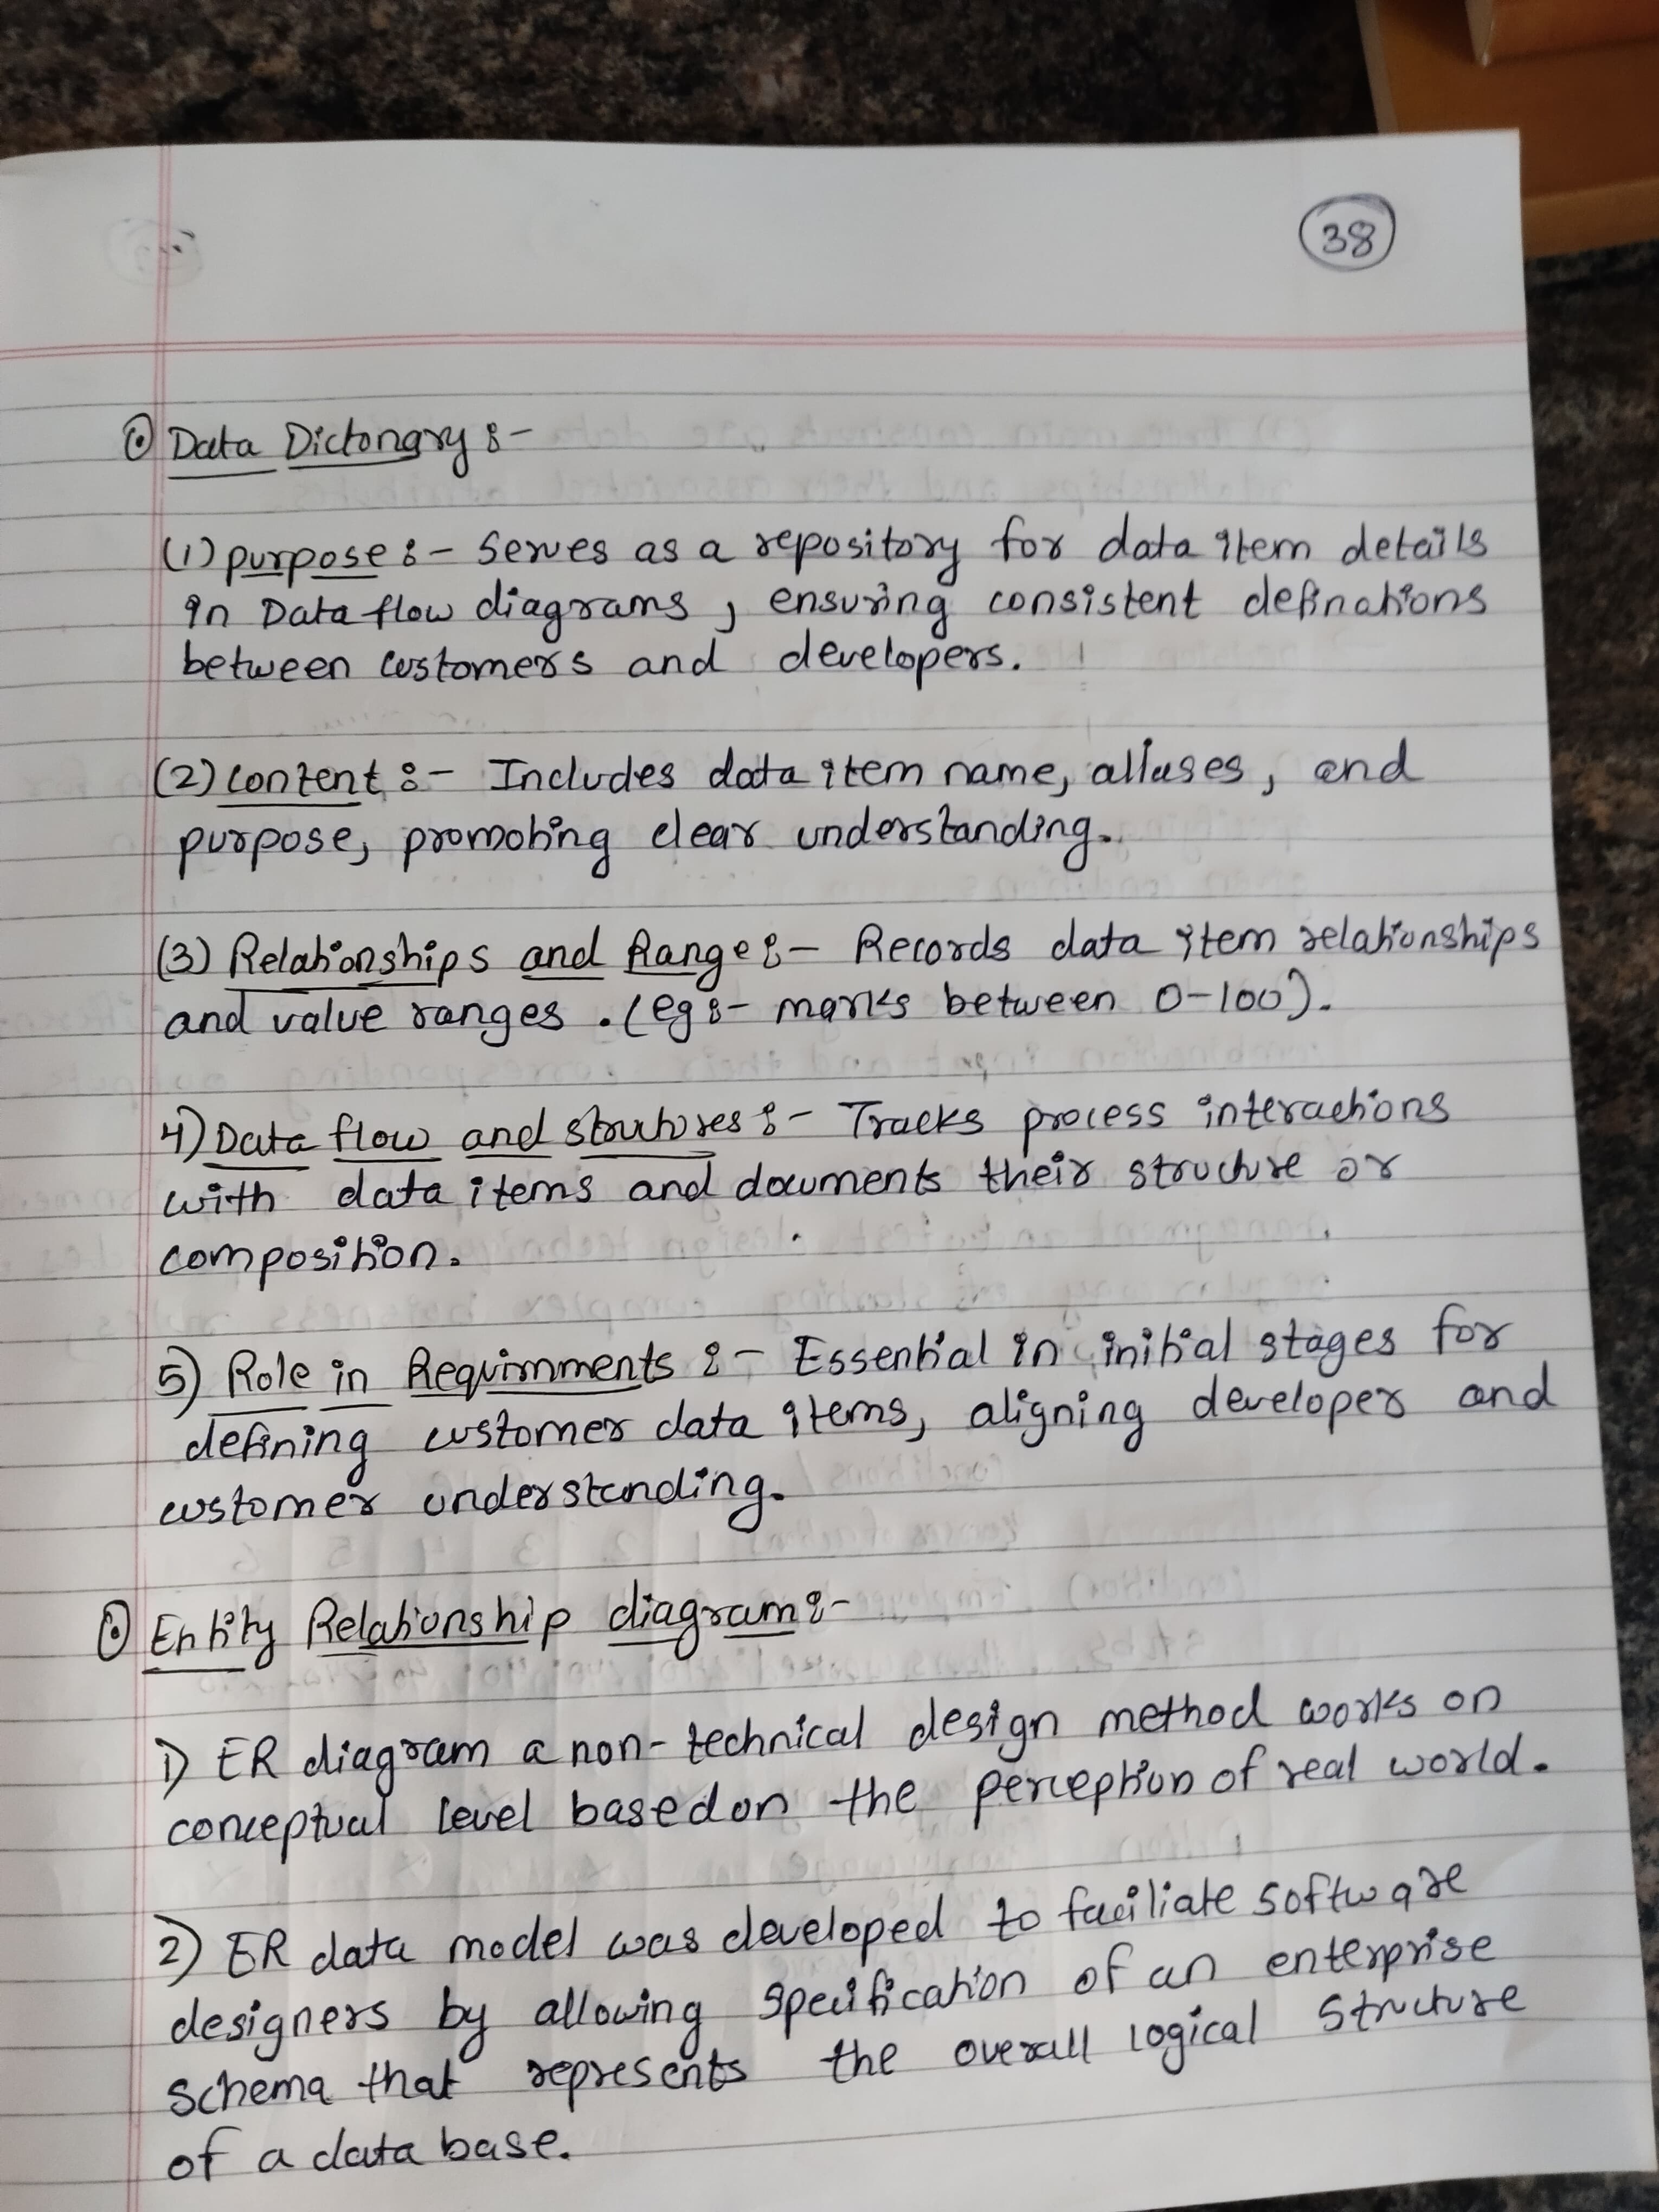 38
Data Dictonary :-
(1) purpose :- Serves as a repository for data item details
in Data flow diagrams, ensuring consistent definations
between customers and developers.
(2) content :- Includes data item name, aliases, and
purpose, promoting clear understanding.
(3) Relationships and Range :- Records data item relationships
and value ranges. (eg :- marks between 0-100).
4) Data flow and structures :- Tracks process interactions
with data items and documents their structure or
composition.
5) Role in Requirnments :- Essential in initial stages for
defining customer data items, aligning developer and
customer understanding.
Entity Relationship diagram :-
1) ER diagram a non-technical design method works on
conceptual level based on the perception of real world.
2) ER data model was developed to faciliate software
designers by allowing specification of an enterprise
schema that represents the overall logical structure
of a data base.